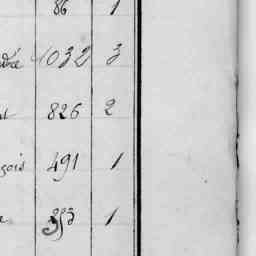 86 1
dré 1032 3
nt 826 2
çois 491 1
e 353 1